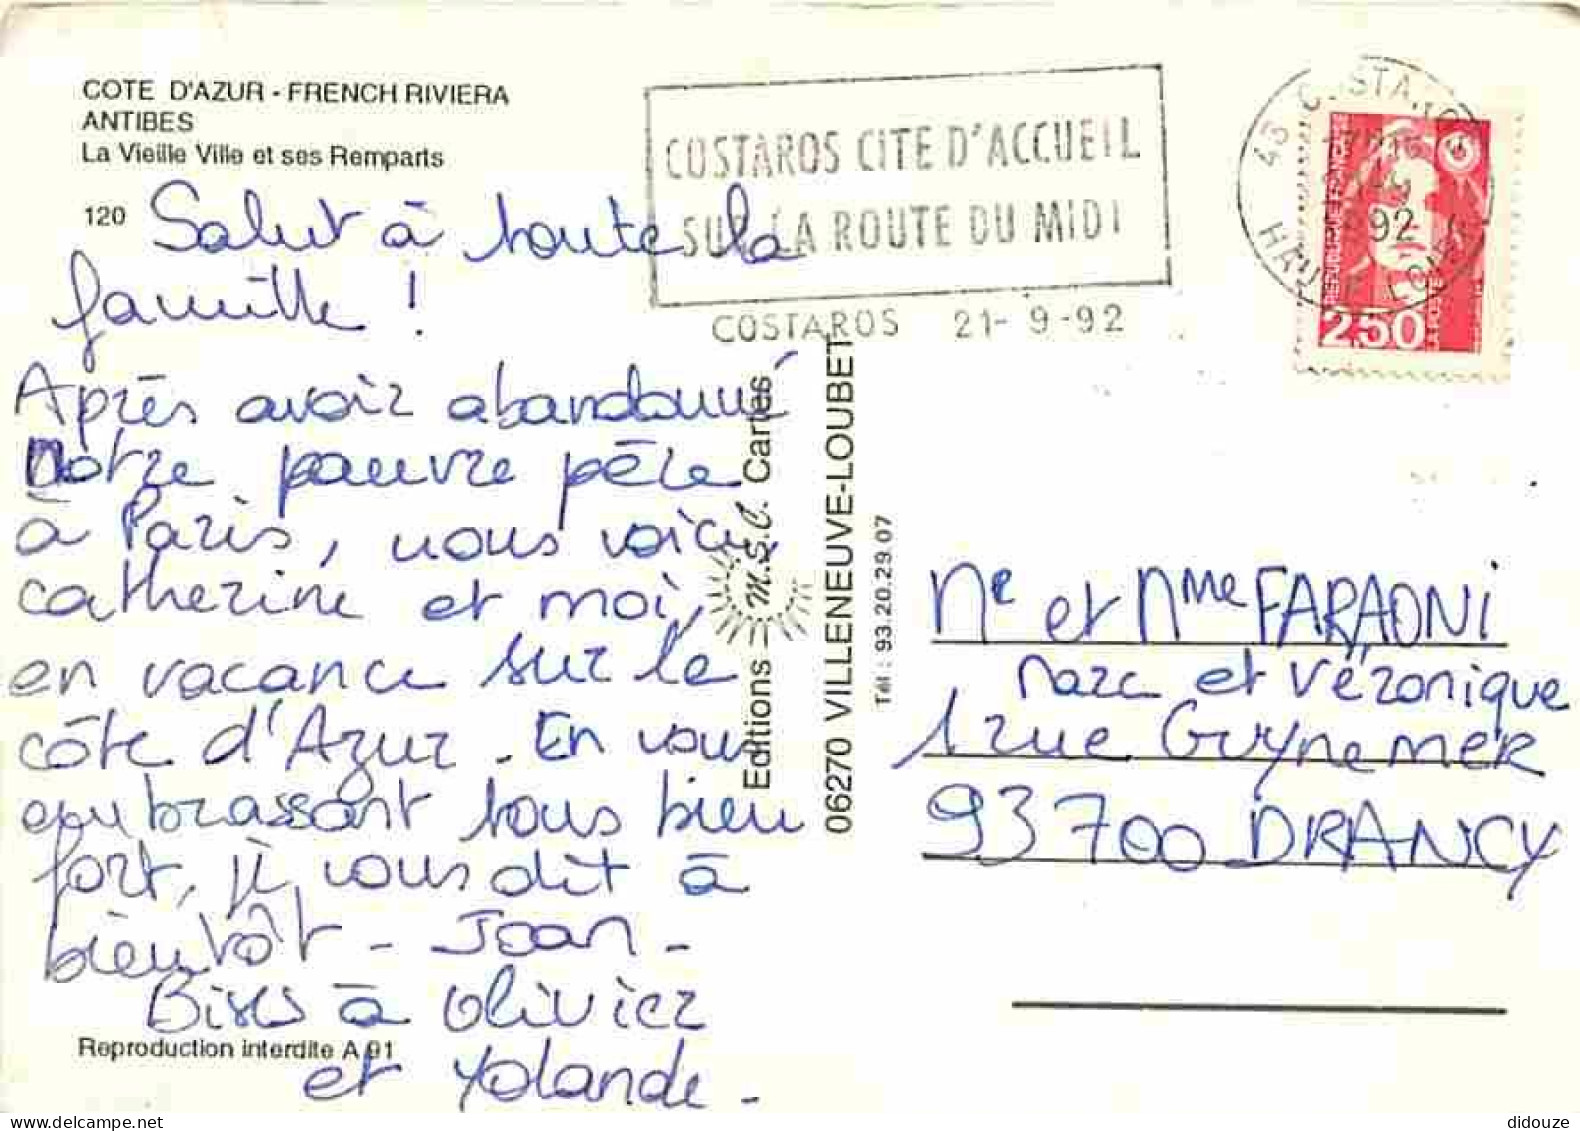 COTE D'AZUR - FRENCH RIVIERA
ANTIBES
La Vieille Ville et ses Remparts
120
COSTAROS CITE D'ACCUEIL
SUR LA ROUTE DU MIDI
COSTAROS 21-9-92
43 COSTAROS
92
HAUTE LOIRE
REPUBLIQUE FRANCAISE
2,50
LA POSTE
Salut à toute la
famille !
Après avoir abandonné
Notre pauvre père
à Paris, nous voici,
Catherine et moi,
en vacance sur la
côte d'Azur. En vous
embrassant tous bien
fort, je vous dit à
bientôt - Joan -
Bises à Olivier
et Yolande -
Reproduction interdite A 91
Editions M.S.C. Cartes
06270 VILLENEUVE-LOUBET
Tél : 93.20.29.07
Mr et Mme FARAONI
Marc et Véronique
1 rue Guynemer
93700 DRANCY
didouze